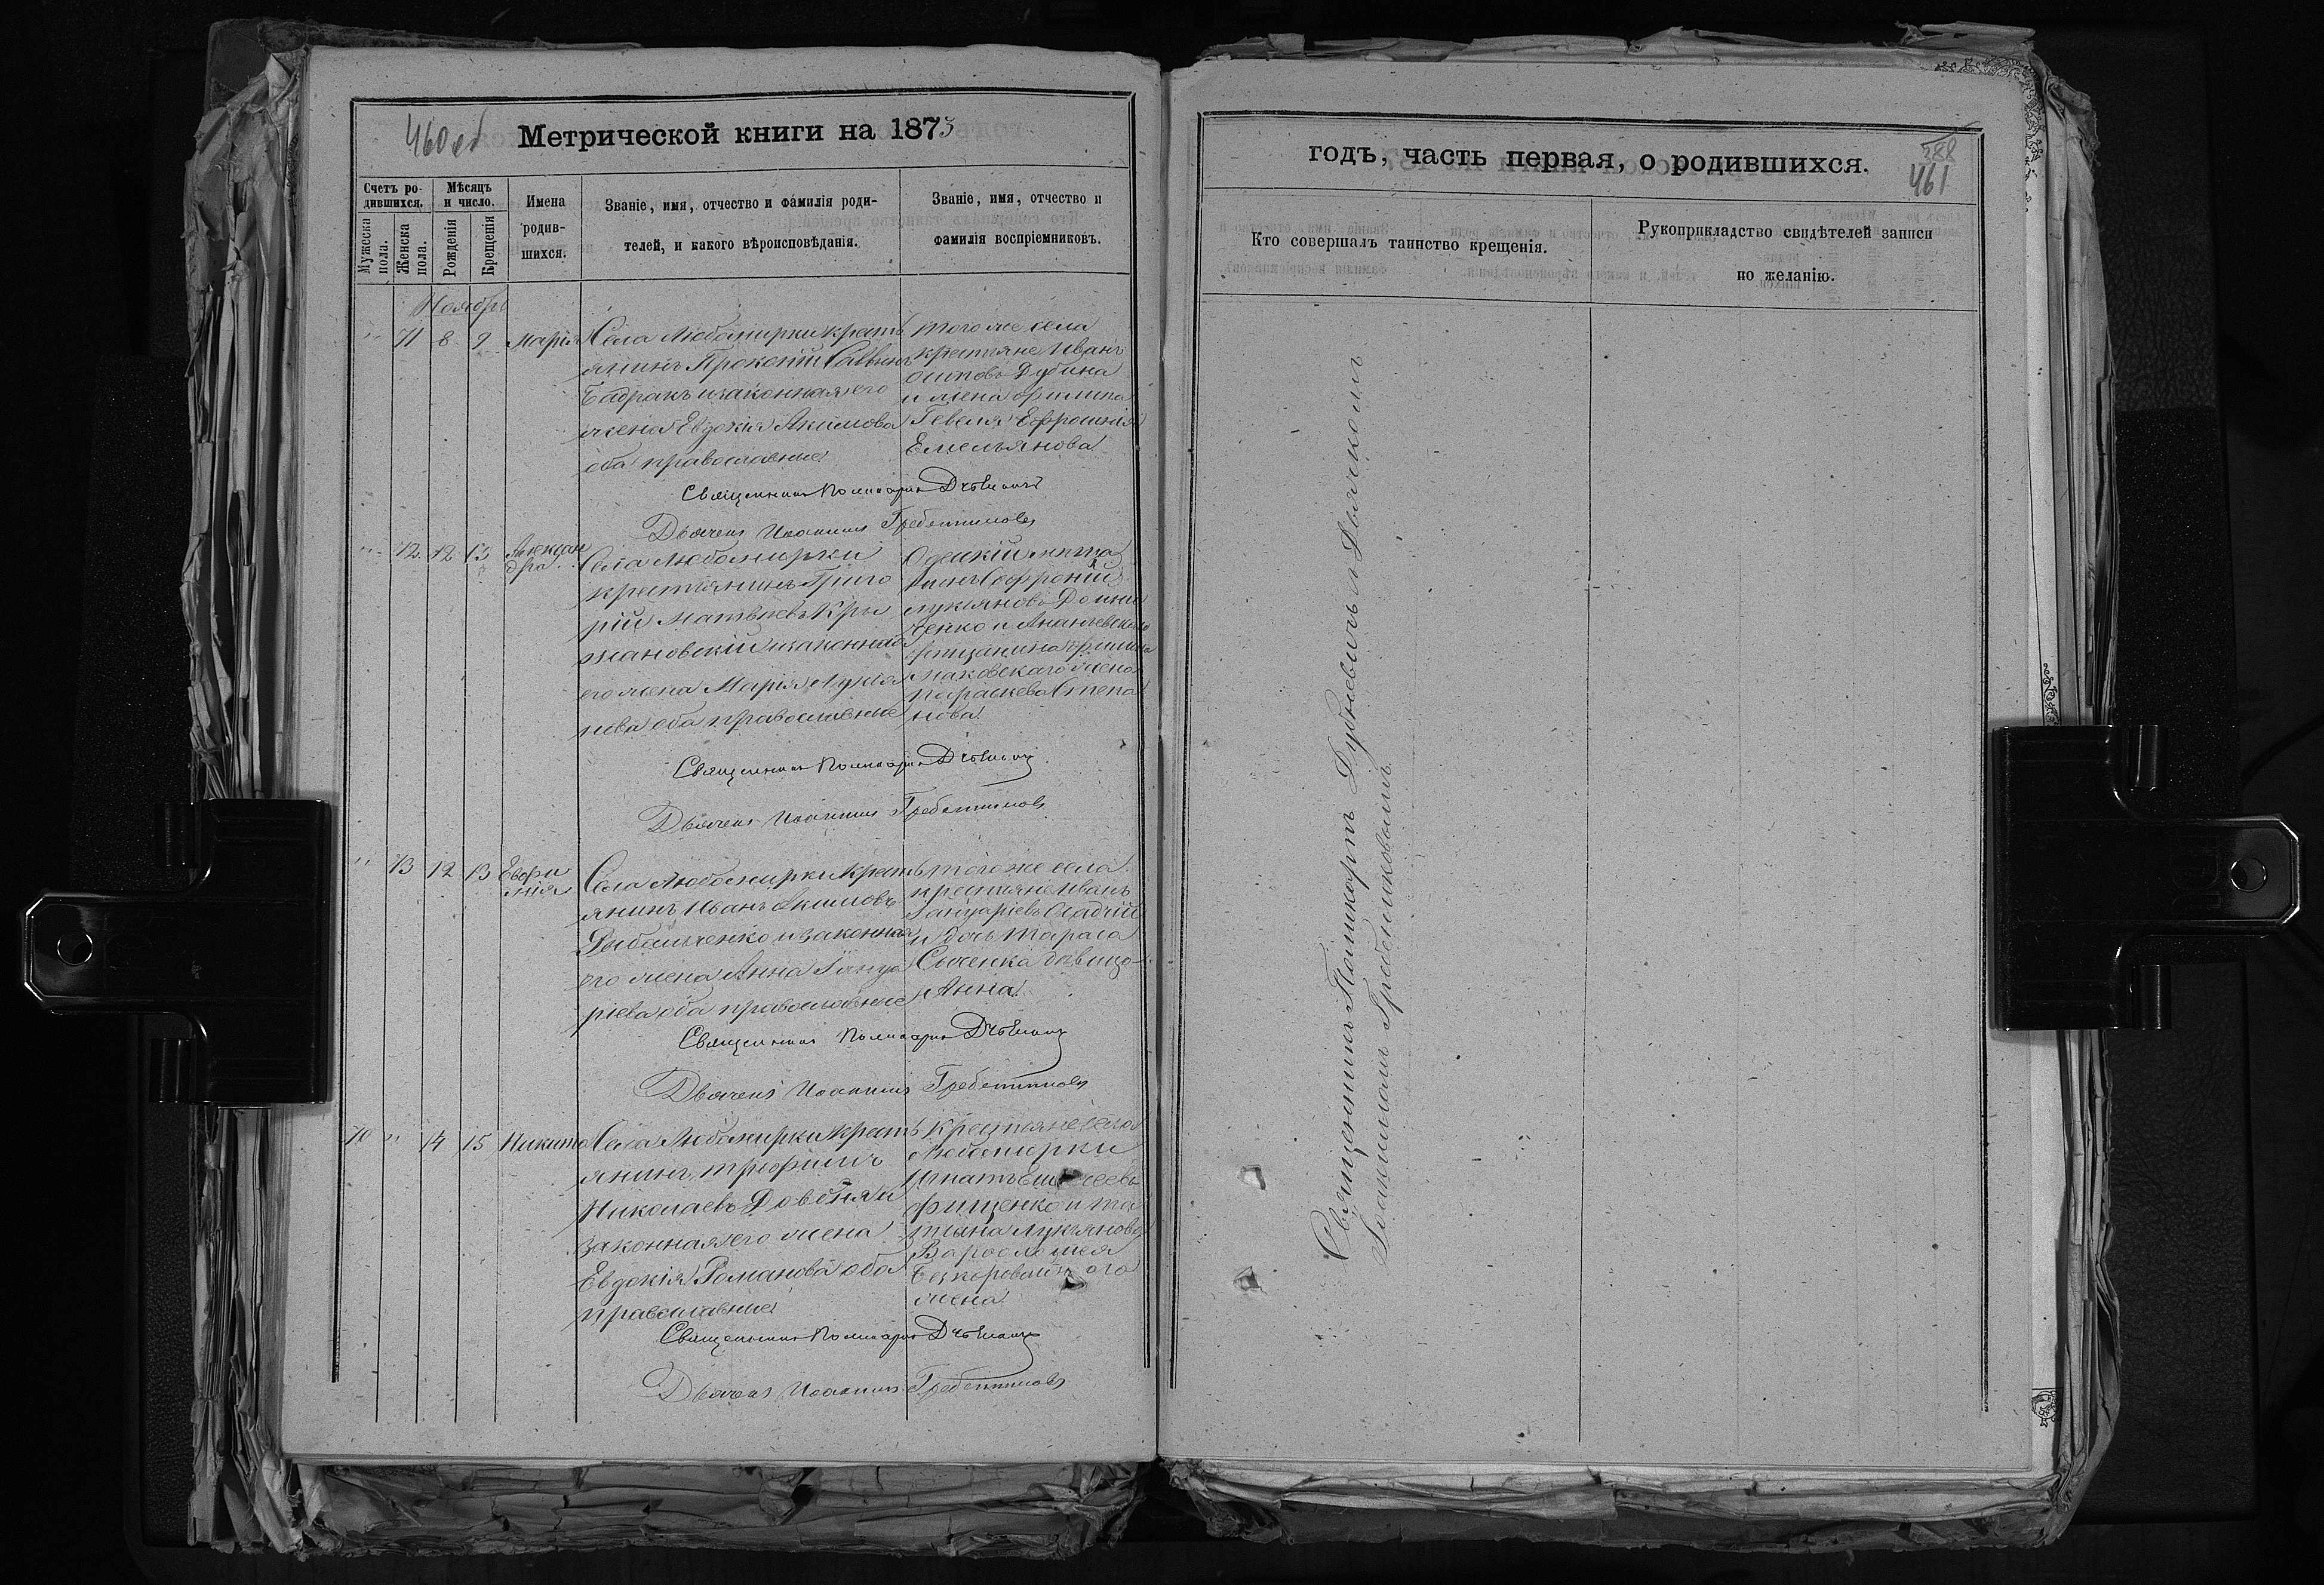 460 об
Метрической книги на 1873
Счетъ родившихся.
Мужеска пола.
Женска пола.
Мѣсяцъ и число.
Рожденія
Крещенія
Имена родившихся.
Званіе, имя, отчество и фамилія роди-
телей, и какого вѣроисповѣданія.
Званіе, имя, отчество и
фамилія воспріемниковъ.
Ноябрь
" 71 8 9 Марія
Села Любомирки крестъ
янинъ Прокопій Саввинъ
законная его
жена Евдокія Акимова
оба православные
того же села
крестьяне Иванъ
Осиповъ Дубина
и жена Филипа
Гевеля Ефросинія
Емельянова
Священникъ Поликарпъ
Дьячекъ Иоаникій Гребенниковъ
" 72 12 13 Алексан
дра
Села Любомирки
крестьянинъ Григо
рій Матвѣевъ Кры
жановскій и законная
его жена Марія Лукія
нова оба православные
Одескій мѣща
нинъ Софроній
Лукьяновъ
и Ананьевскаго
мѣщанина Филипа
Маковскаго жена
Параскева Степа
нова
Священникъ Поликарпъ
Дьячекъ Иоаникій Гребенниковъ
" 73 12 13 Евфи
мія
Села Любомирки крестъ
янинъ Иванъ Акимовъ
Рыбальченко и законная
его жена Анна Януа
ріева оба православные
того же села
крестьяне Иванъ
Януаріевъ Осадчій
и дочь Тараса
Сыченка дѣвица
Анна
Священникъ Поликарпъ
Дьячекъ Иоаникій Гребенниковъ
70 " 14 15 Никита
Села Любомирки крестъ
янинъ Трофимъ
Николаевъ
законная его жена
Евдокія Романова оба
православные
Крестьяне села
Любомирки
Игнатъ
Фищенко и Та
тьяна Лукьянова
Варфоломея
Безкоровайного
жена
Священникъ Поликарпъ
Дьячекъ Иоаникій Гребенниковъ
годъ, часть первая, о родившихся.
388
461
Кто совершалъ таинство крещенія.
Рукоприкладство свидѣтелей записи
по желанію.
Священникъ Поликарпъ съ Дьячкомъ
Гребенниковымъ